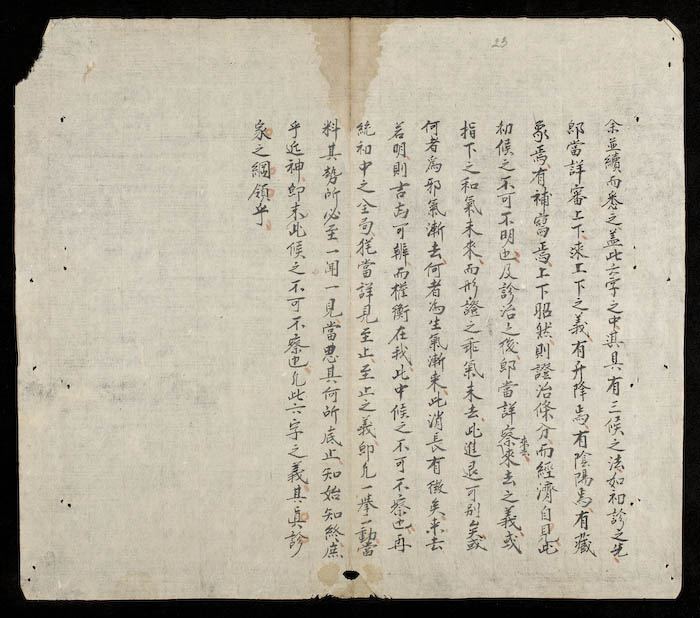 23
余並續而悉之盖此六字之中真具有三候之法如初診之先
即當詳審上下來上下之義有升降焉有陰陽焉有藏
象焉有補瀉焉上下昭然則證治條分而經濟自見此
初候之不可不明也及診治之後即當詳察來去之義或
來去
指下之和氣未來而形證之乖氣未去此進退可別矣或
何者為邪氣漸去何者為生氣漸來此消長有徵矣來去
若明則吉凶可辨而權衡在我此中候之不可不察也再
統初中之全局猶當詳見至止至止之義即凡一舉一動當
料其勢所必至一聞一見當思其何所底止知始知終庶
乎近神即末此候之不可不察也凡此六字之義其真診
家之綱領乎